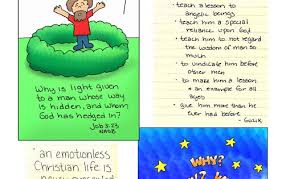 Why is light given
to a man whose way
is hidden, and whom
God has hedged In?
Job 3:23
NASB
• teach a lesson to
angelic beings
• teach him a special
reliance upon God
• teach him to not regard
the wisdom of man so
much
• to vindicate him before
other men
• to make him a lesson
& an example for all
ages
• give him more than he
ever had before
- Guzik
• an emotionless
Christian life is
WHY?